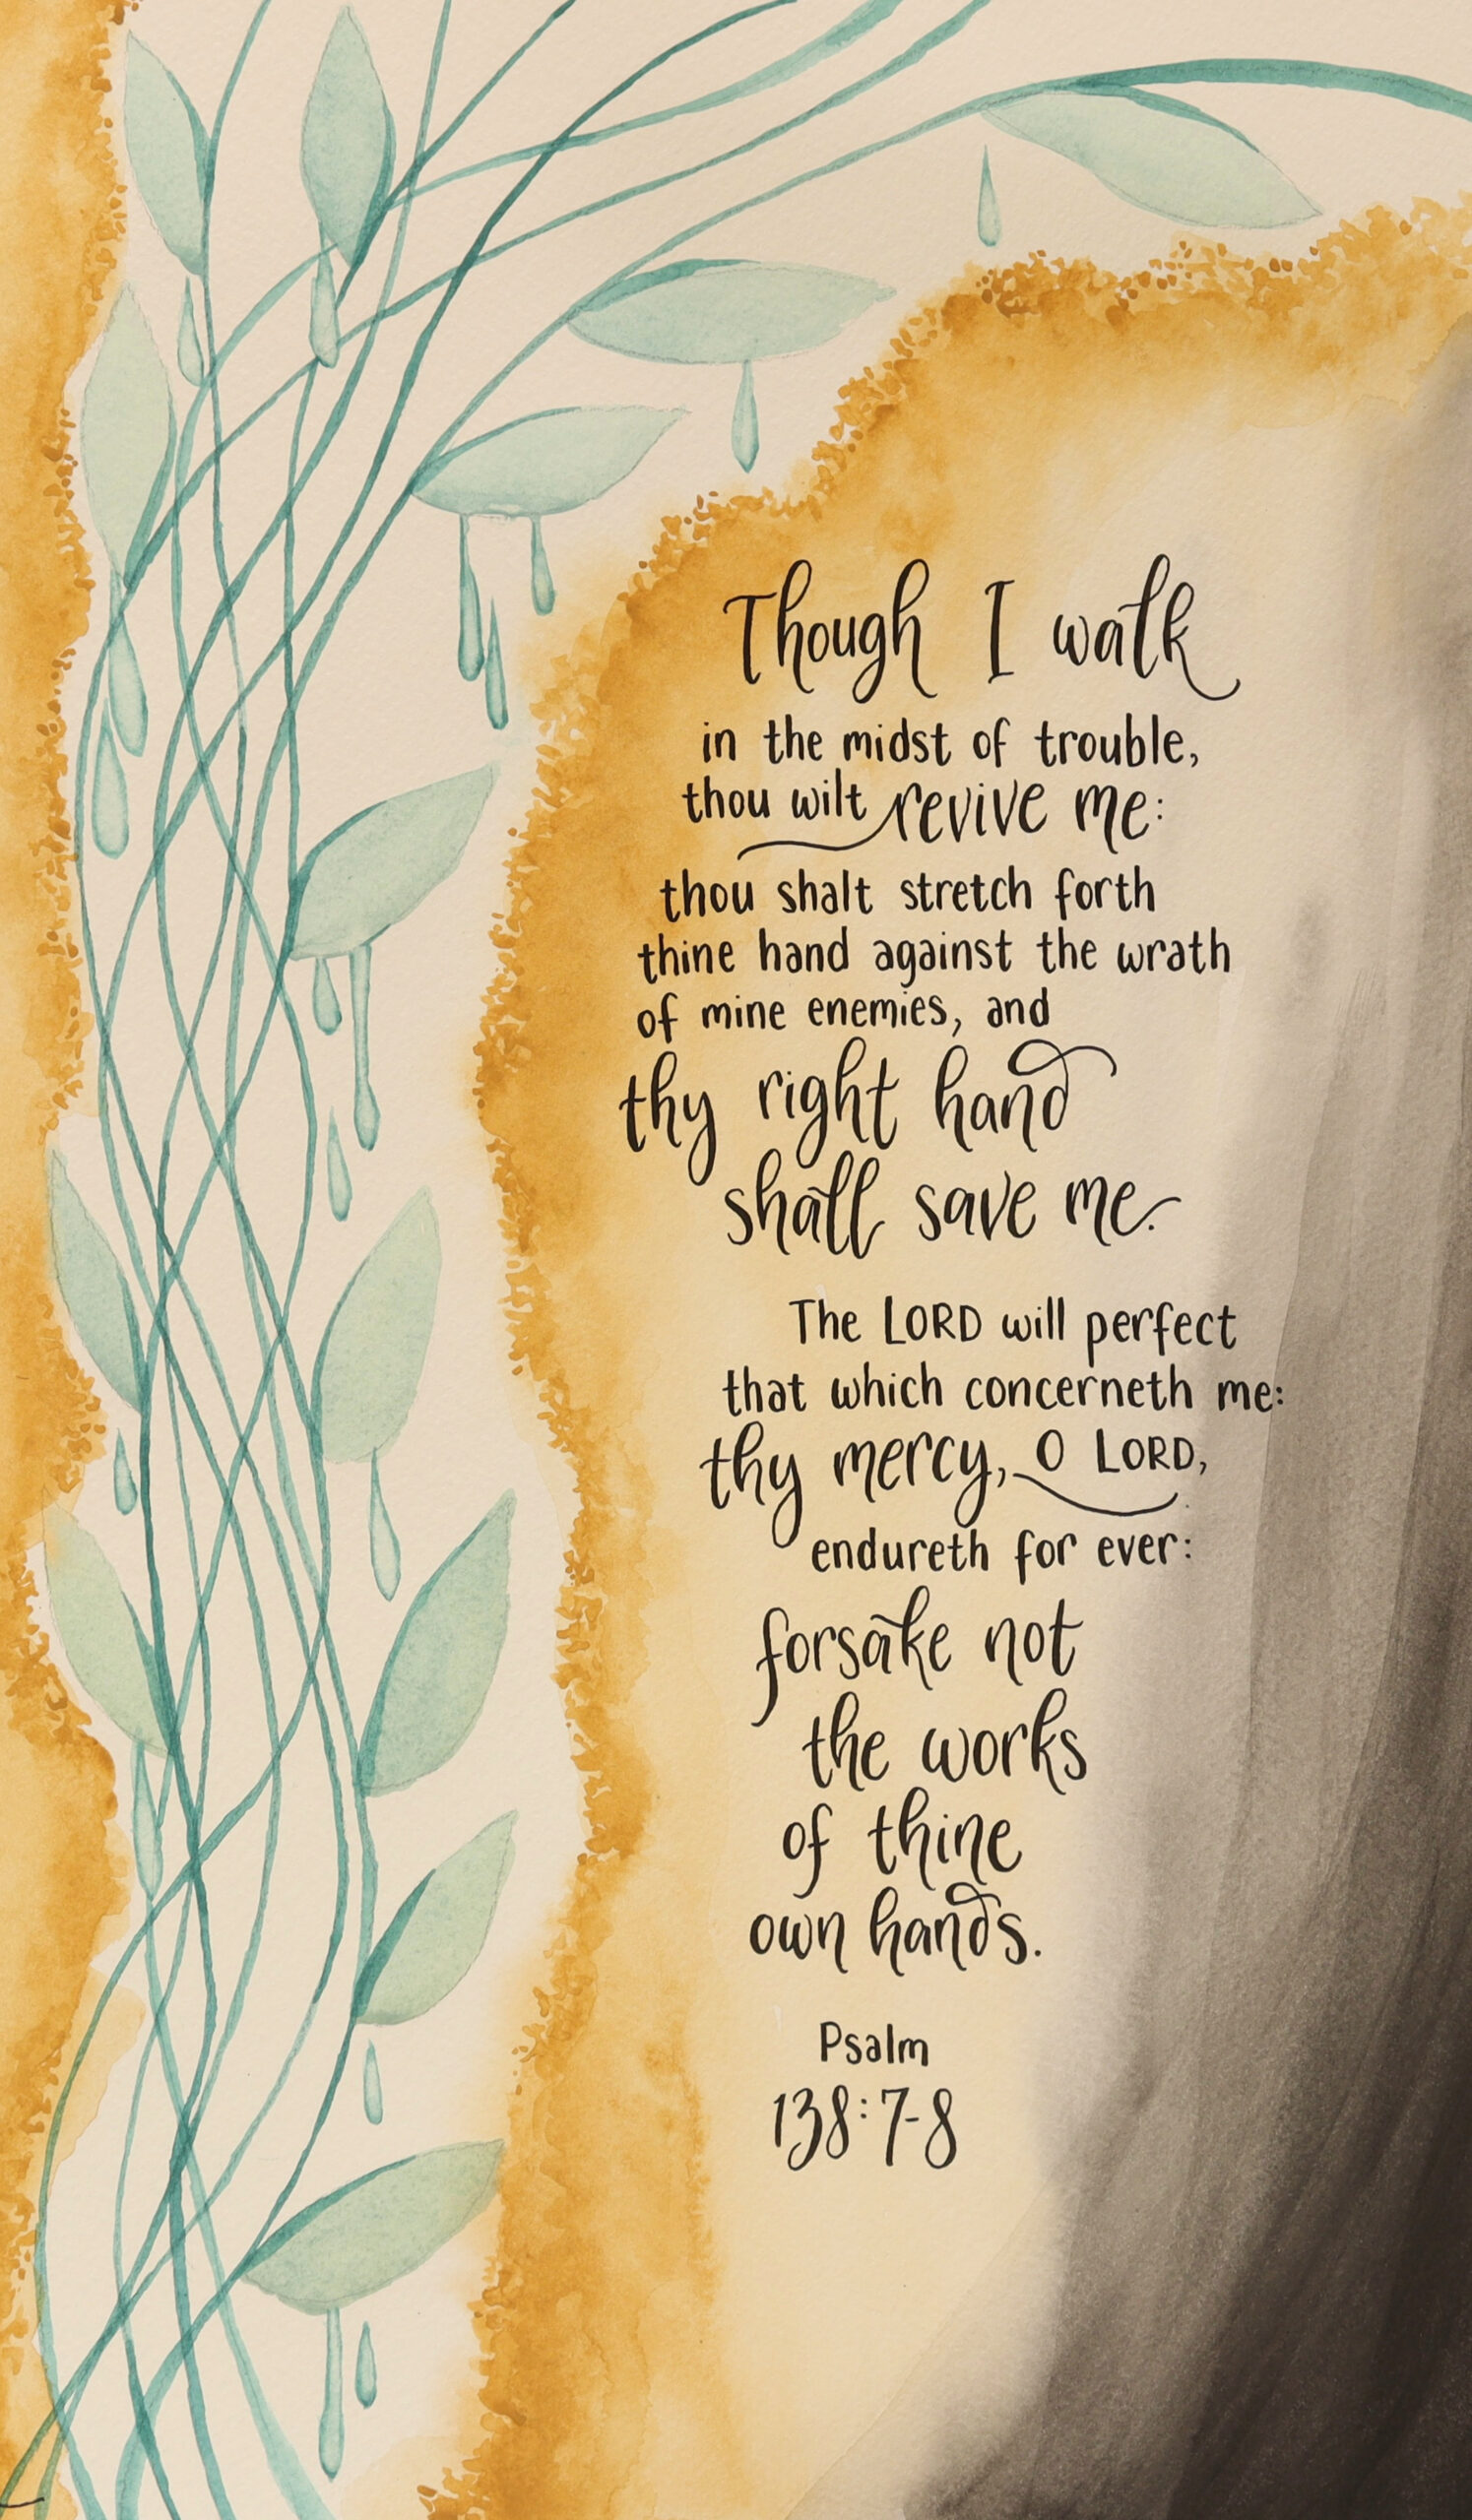 Though I walk
in the midst of trouble,
thou wilt revive me:
thou shalt stretch forth
thine hand against the wrath
of mine enemies, and
thy right hand
shall save me.
The LORD will perfect
that which concerneth me:
thy mercy, O LORD,
endureth for ever:
forsake not
the works
of thine
own hands.
Psalm
138:7-8